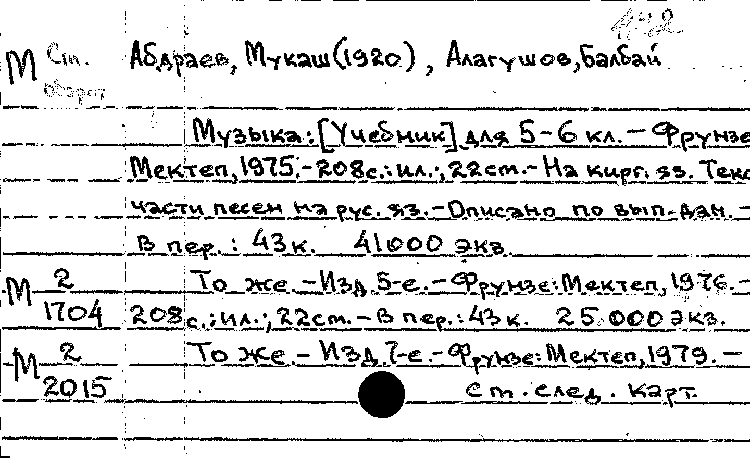 М Ст. Абдраев, Мукаш(1920), Алагушов, Балбай
оборот
Музыка: [Учебник] для 5-6 кл. - Фрунзе
Мектеп, 1975. - 208с.: ил.; 22ст. - На кирг. яз. Текс
части песен на рус. яз. - Описано по вып. дан. -
В пер.: 43к. 41000 экз.
М 2/1704 То же. - Изд. 5-е. - Фрунзе: Мектеп, 1976. -
208с.: ил.; 22ст. - В пер.: 43к. 25.000 экз.
М 2/2015 То же. - Изд. 7-е. - Фрунзе: Мектеп, 1979. -
ст. след. карт.